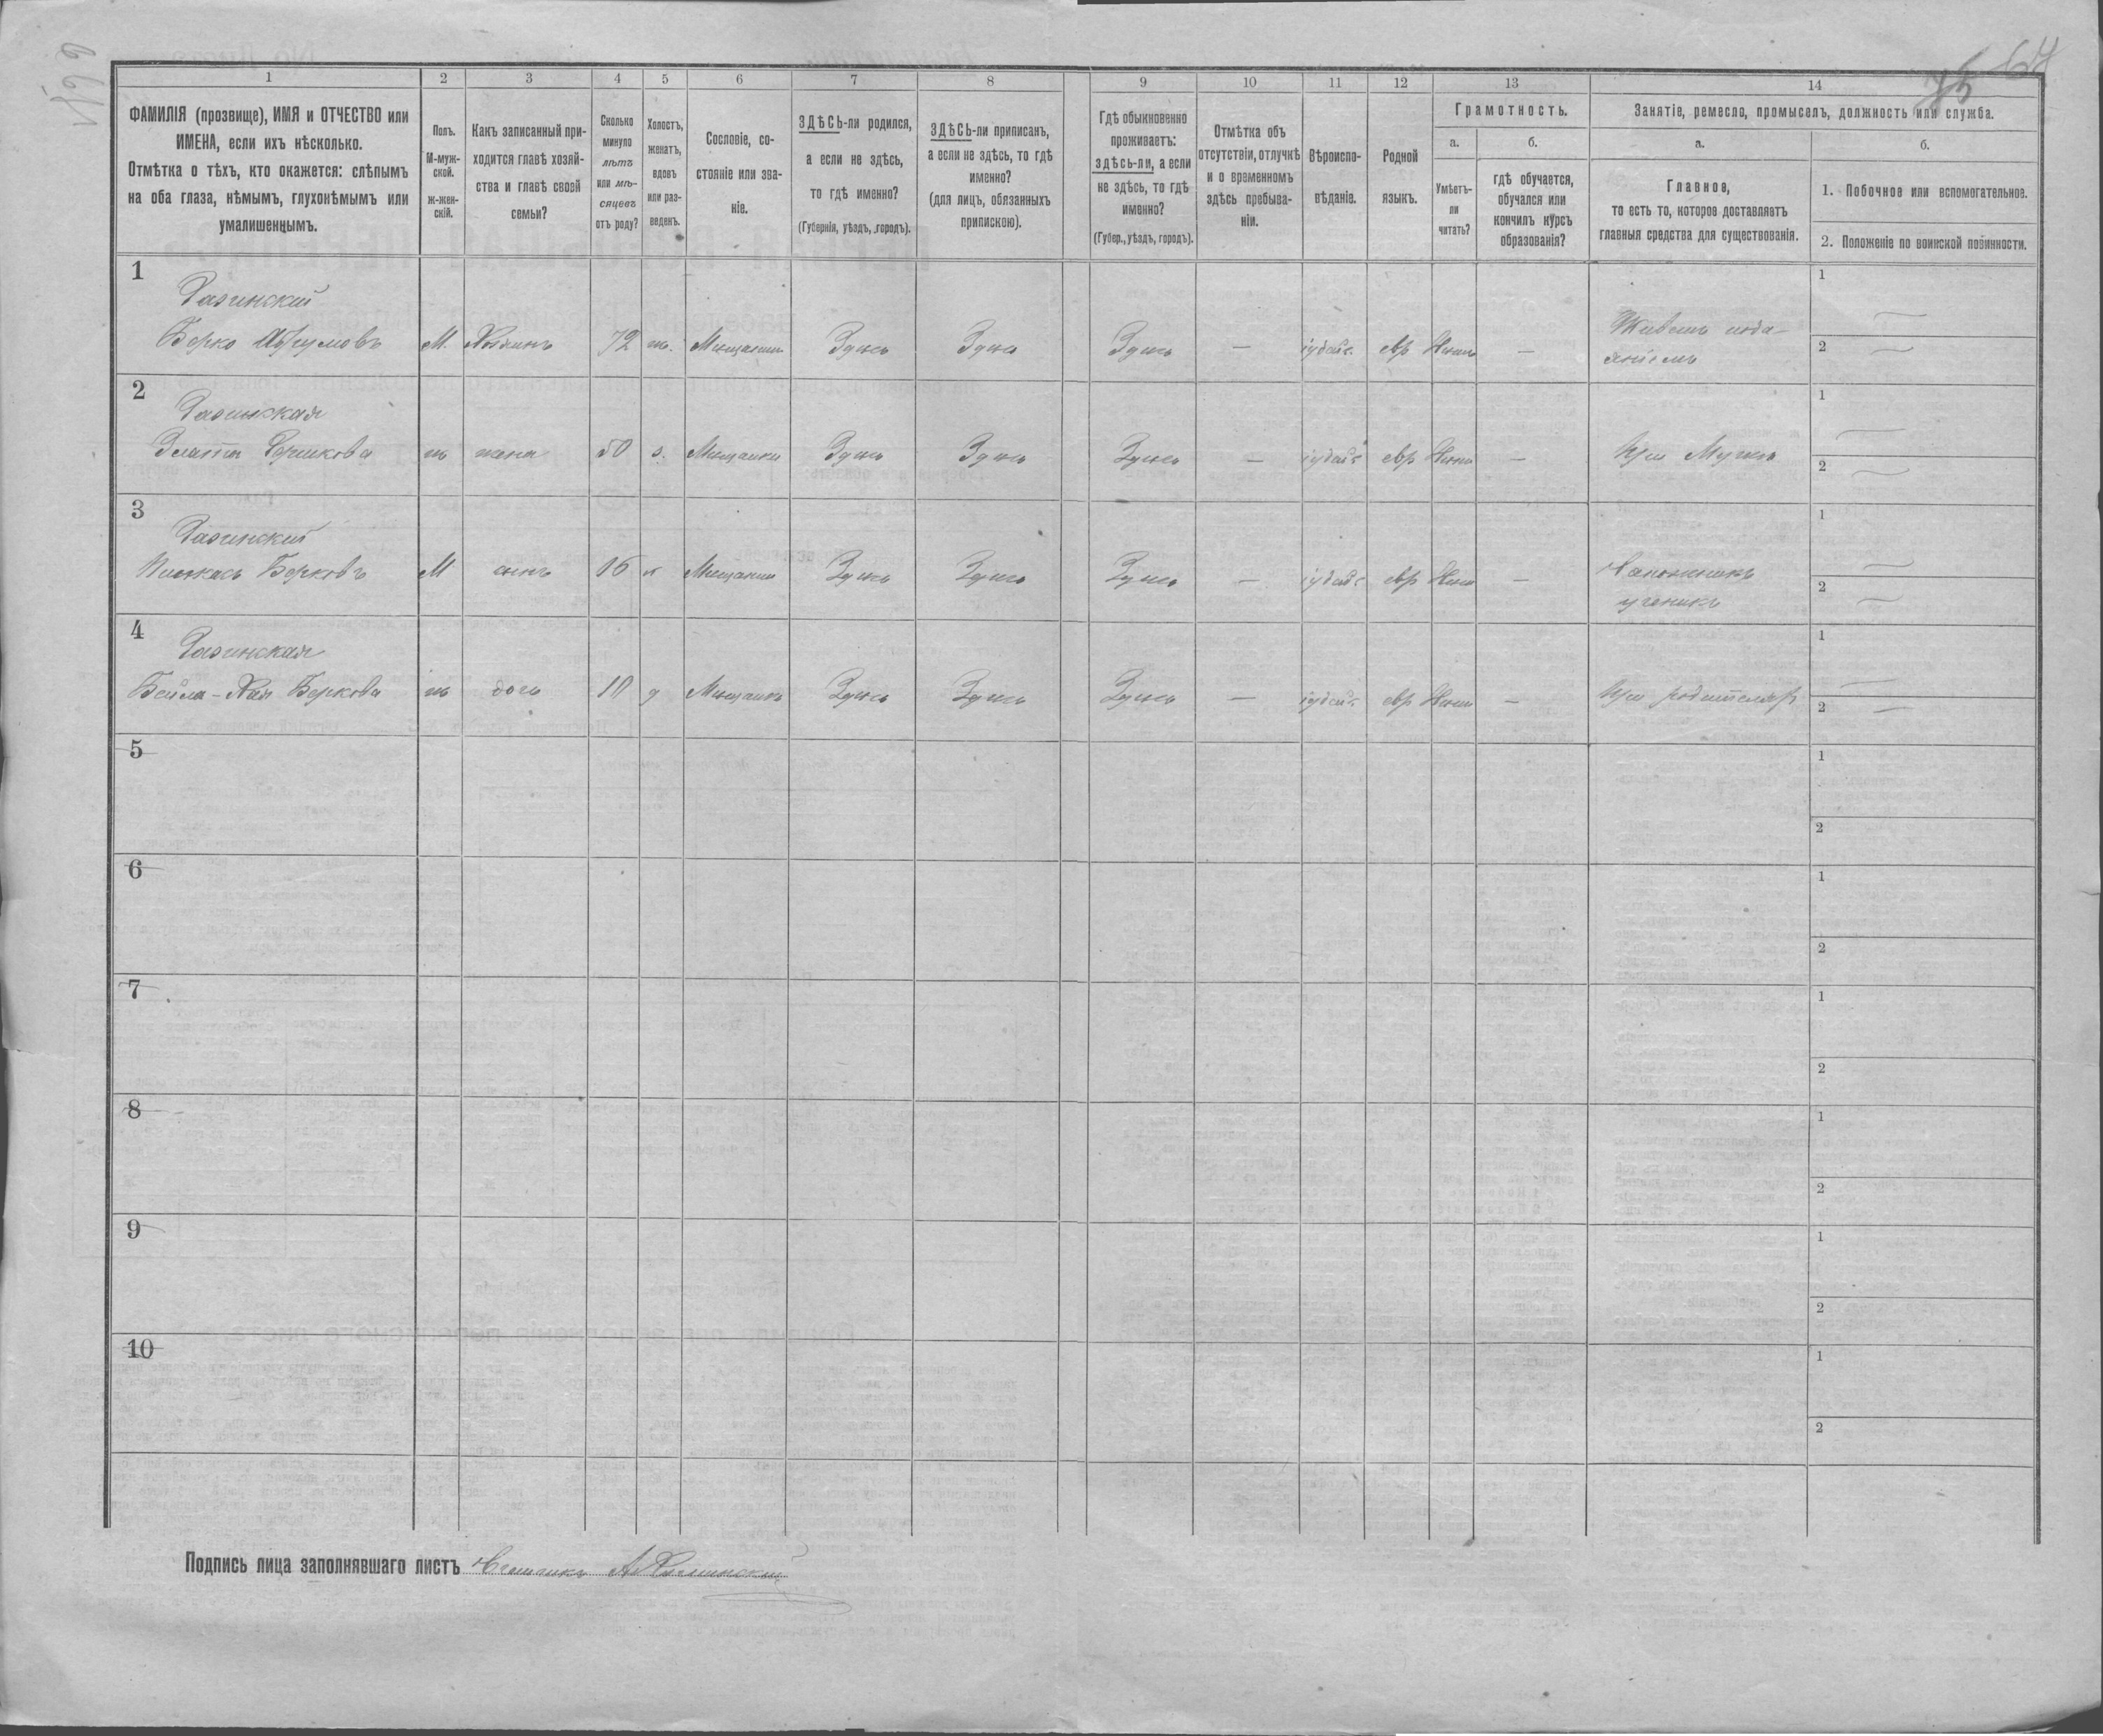 75 67
1 2 3 4 5 6 7 8 9 10 11 12 13 14
ФАМИЛІЯ (прозвище), ИМЯ и ОТЧЕСТВО или
ИМЕНА, если ихъ нѣсколько.
Отмѣтка о тѣхъ, кто окажется: слѣпымъ
на оба глаза, нѣмымъ, глухонѣмымъ или
умалишеннымъ.
Полъ.
М-муж-
ской.
ж-жен-
скій.
Какъ записанный при-
ходится главѣ хозяй-
ства и главѣ своей
семьи?
Сколько
минуло
лѣтъ
или мѣ-
сяцевъ
отъ роду?
Холостъ,
женатъ,
вдовъ
или раз-
веденъ.
Сословіе, со-
стояніе или зва-
ніе.
ЗДѢСЬ-ли родился,
а если не здѣсь,
то гдѣ именно?
(Губернія, уѣздъ, городъ).
ЗДѢСЬ-ли приписанъ,
а если не здѣсь, то гдѣ
именно?
(для лицъ, обязанныхъ
припискою).
Гдѣ обыкновенно
проживаетъ:
здѣсь-ли, а если
не здѣсь, то гдѣ
именно?
(Губер., уѣздъ, городъ).
Отмѣтка объ
отсутствіи, отлучкѣ
и о временномъ
здѣсь пребыва-
ніи.
Вѣроиспо-
вѣданіе.
Родной
языкъ.
Грамотность.
а.
Умѣетъ-
ли
читать?
б.
гдѣ обучается,
обучался или
кончилъ курсъ
образованія?
Занятіе, ремесло, промыселъ, должность или служба.
а.
Главное,
то есть то, которое доставляетъ
главныя средства для существованія.
б.
1. Побочное или вспомогательное.
2. Положеніе по воинской повинности.
1
Разинскій
Берко Абрумовъ М. Хозяинъ 72 ж. Мещанинъ Здѣсь Здѣсь Здѣсь — іудейс. евр Нѣтъ — Живетъ пода-
яніемъ
1 —
2 —
2
Разинская
Злата Гершкова ж жена 50 з. Мещанка Здѣсь Здѣсь Здѣсь — іудейс евр Нѣтъ — При Мужѣ
1 —
2 —
3
Разинскій
Пинкасъ Берковъ М сынъ 16 х Мещанинъ Здѣсь Здѣсь Здѣсь — іудейс евр Нѣтъ — Сапожникъ
ученикъ
1 —
2 —
4
Разинская
Бейла-Хая Беркова ж дочь 10 д Мещанка Здѣсь Здѣсь Здѣсь — іудейс евр Нѣтъ — При родителяхъ
1 —
2 —
5 1 2
6 1 2
7 1 2
8 1 2
9 1 2
10 1 2
Подпись лица заполнявшаго листъ Счетчикъ А.